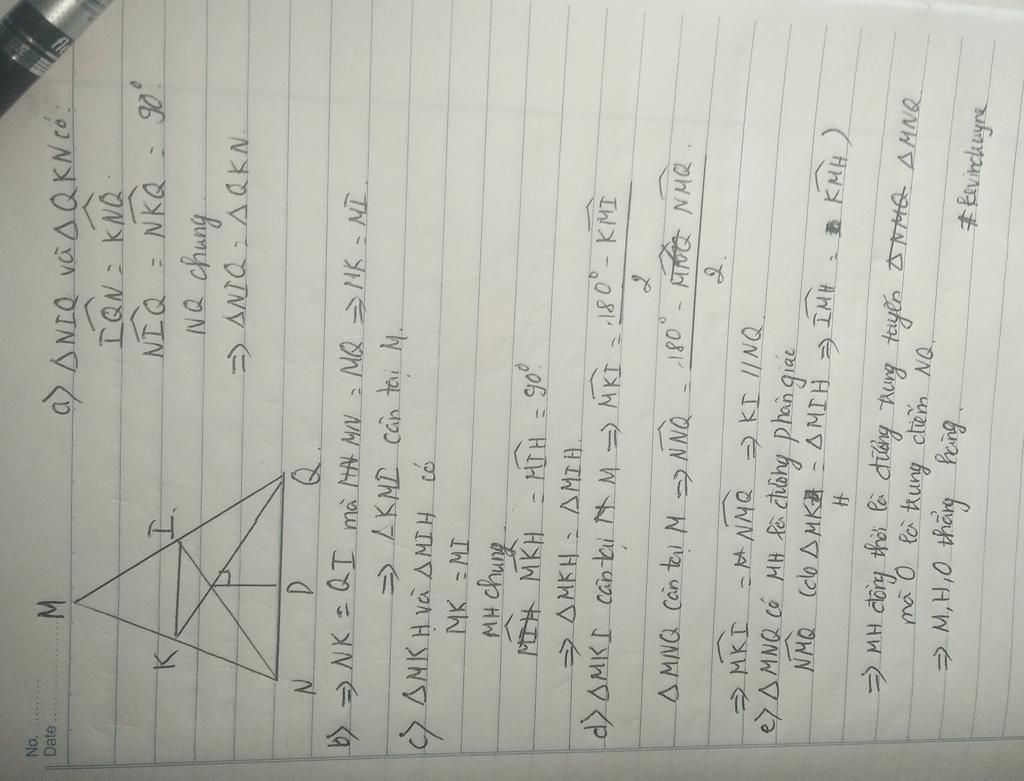 No. ............
Date ............
M
K
I
H
N
D
Q
a) ΔNIQ và ΔQKN có:
IQN = KNQ.
NIQ = NKQ = 90°
NQ chung
⇒ ΔNIQ = ΔQKN.
b) ⇒ NK = QI mà MN = MQ ⇒ MK = MI.
⇒ ΔKMI cân tại M.
c) ΔMKH và ΔMIH có
MK = MI
MH chung
MKH = MIH = 90°
⇒ ΔMKH = ΔMIH.
d) ΔMKI cân tại M ⇒ MKI = 180° - KMI
2
ΔMNQ cân tại M ⇒ NNQ = 180° - NMQ.
2.
⇒ MKI = NMQ ⇒ KI // NQ.
e) ΔMNQ có MH là đường phân giác
NMQ (do ΔMKH = ΔMIH ⇒ IMH = KMH)
⇒ MH đồng thời là đường trung tuyến ΔMNQ
mà O là trung điểm NQ.
⇒ M, H, O thẳng hàng.
#Kevinchuyne